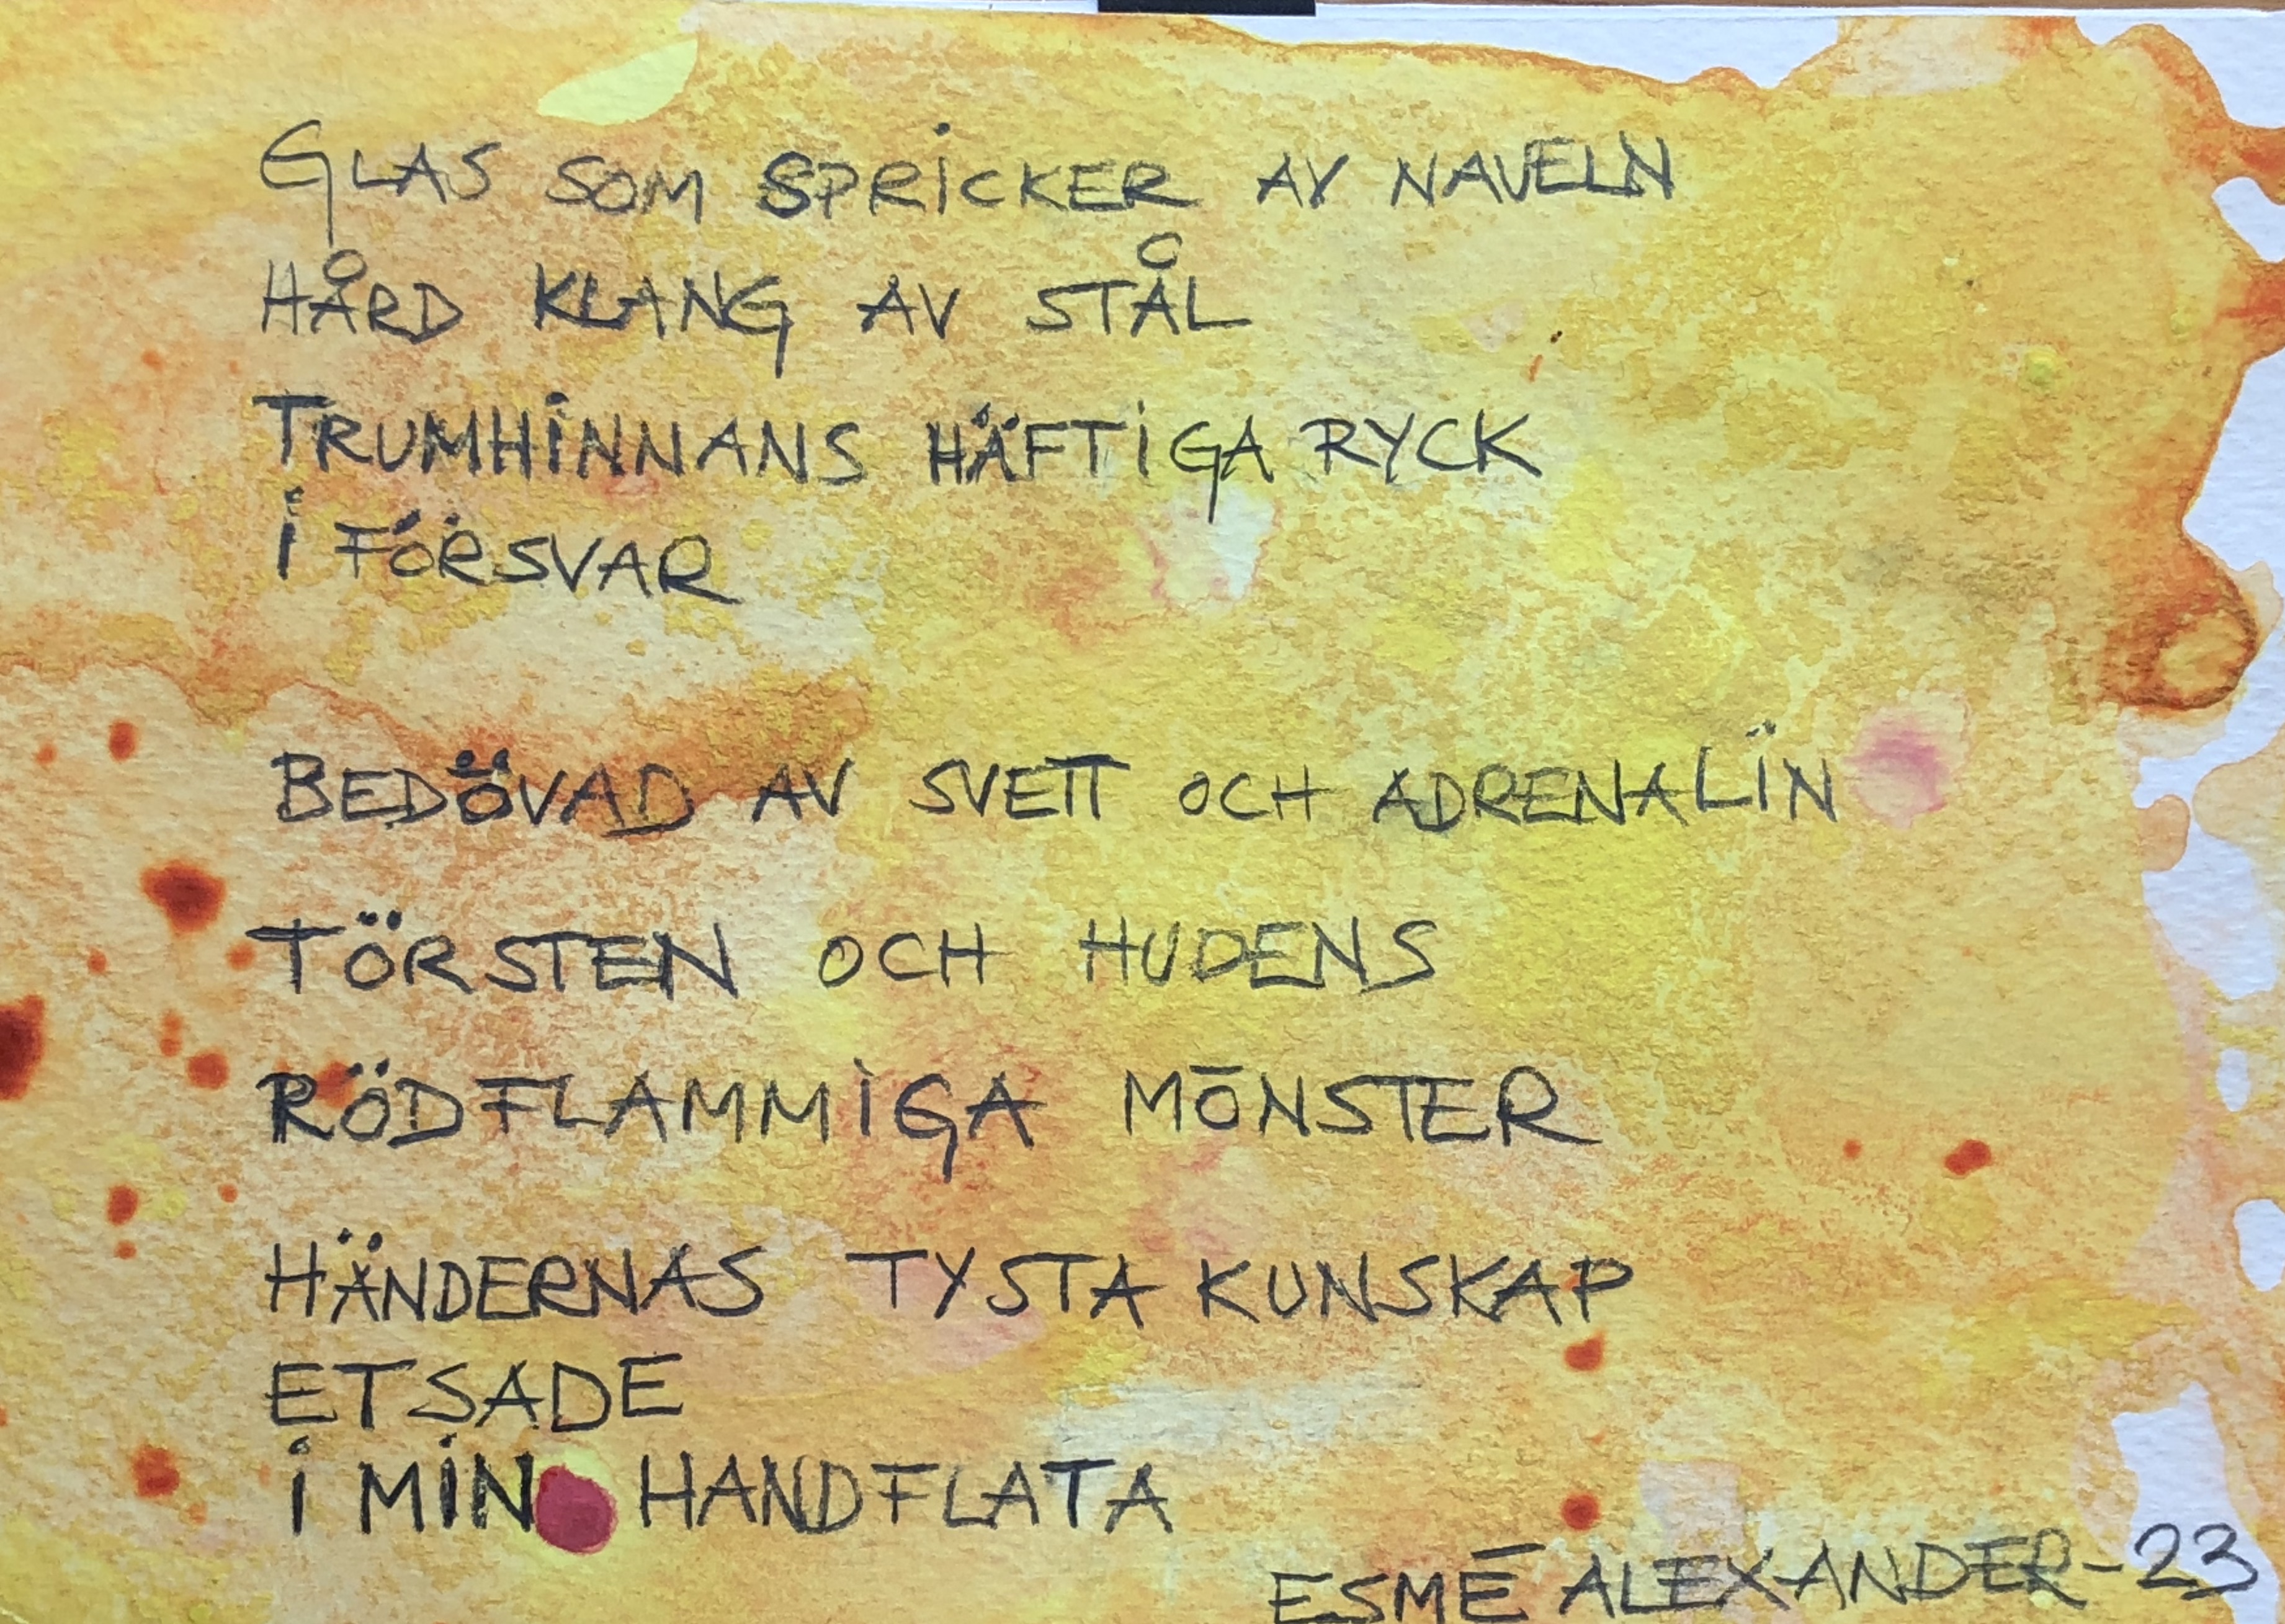 GLAS SOM SPRICKER AV NAVELN
HÅRD KLANG AV STÅL
TRUMHINNANS HÄFTIGA RYCK
I FÖRSVAR
BEDÖVAD AV SVETT OCH ADRENALIN
TÖRSTEN OCH HUDENS
RÖDFLAMMIGA MÖNSTER
HÄNDERNAS TYSTA KUNSKAP
ETSADE
I MIN HANDFLATA
ESMÉ ALEXANDER-23